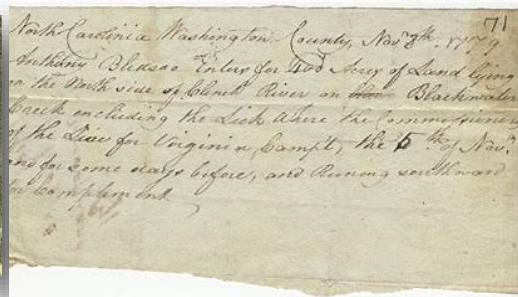 71
North Carolina Washington County, Nov.r 8th. 1779
Anthony Bledsoe Enters for 400 Acres of Land lying
on the North side of Clinch River on Blackwater
Creek including the Lick where the Commissioners
of the Line for Virginia, Campt, the 5th. of Nov.r
and for some days before, and Runing southward
for Complement